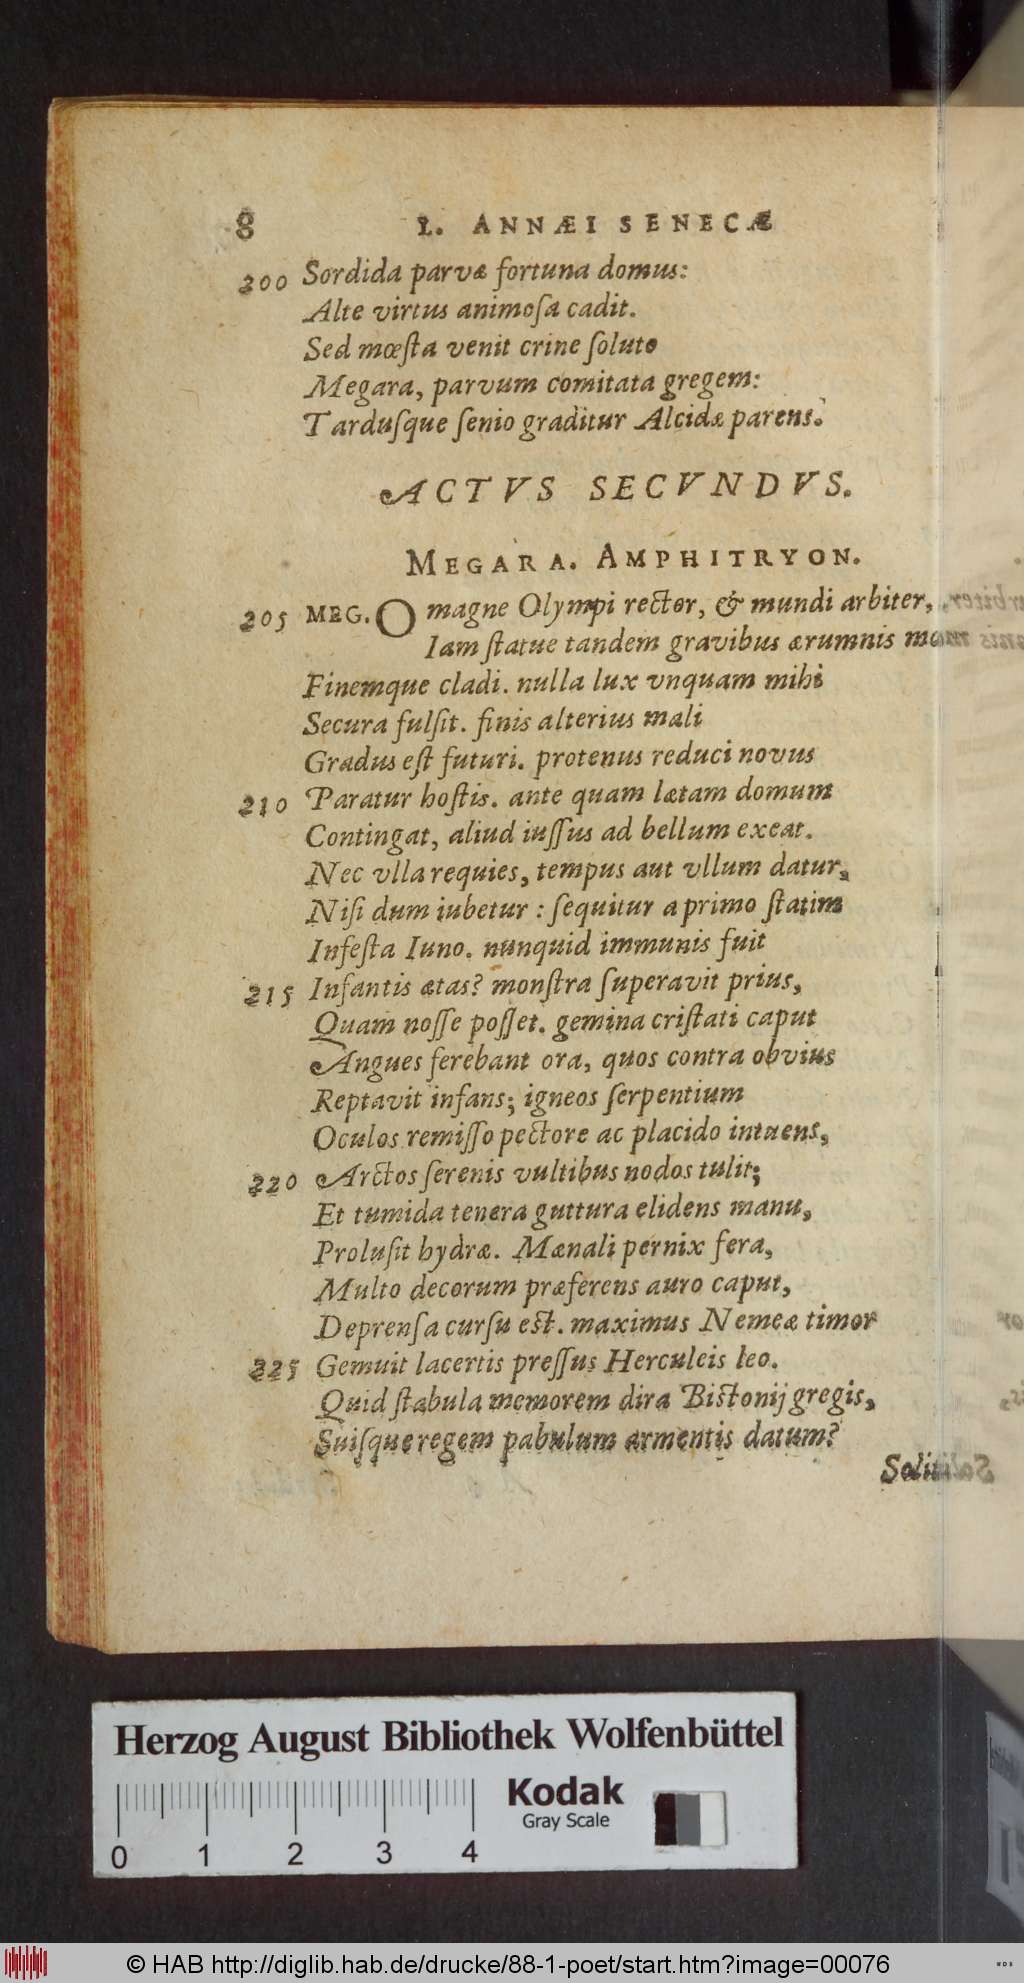 8 L. ANNÆI SENECÆ
200 Sordida parvæ fortuna domus:
Alte virtus animoſa cadit.
Sed mœſta venit crine ſoluto
Megara, parvum comitata gregem:
Tarduſque ſenio graditur Alcidæ parens.
ACTVS SECVNDVS.
MEGARA. AMPHITRYON.
205 MEG. O magne Olympi rector, & mundi arbiter,
Iam ſtatue tandem gravibus ærumnis modum
Finemque cladi. nulla lux vnquam mihi
Secura fulſit. finis alterius mali
Gradus eſt futuri. protenus reduci novus
210 Paratur hoſtis. ante quam lætam domum
Contingat, aliud iuſſus ad bellum exeat.
Nec vlla requies, tempus aut vllum datur,
Niſi dum iubetur : ſequitur a primo ſtatim
Infeſta Iuno. nunquid immunis fuit
215 Infantis ætas? monſtra ſuperavit prius,
Quam noſſe poſſet. gemina criſtati caput
Angues ferebant ora, quos contra obvius
Reptavit infans; igneos ſerpentium
Oculos remiſſo pectore ac placido intuens,
220 Arctos ſerenis vultibus nodos tulit;
Et tumida tenera guttura elidens manu,
Proluſit hydræ. Mænali pernix fera,
Multo decorum præferens auro caput,
Deprenſa curſu eſt. maximus Nemeæ timor
225 Gemuit lacertis preſſus Herculeis leo.
Quid ſtabula memorem dira Biſtonij gregis,
Suiſque regem pabulum armentis datum?
Soliti
Herzog August Bibliothek Wolfenbüttel
Kodak
Gray Scale
0 1 2 3 4
© HAB http://diglib.hab.de/drucke/88-1-poet/start.htm?image=00076